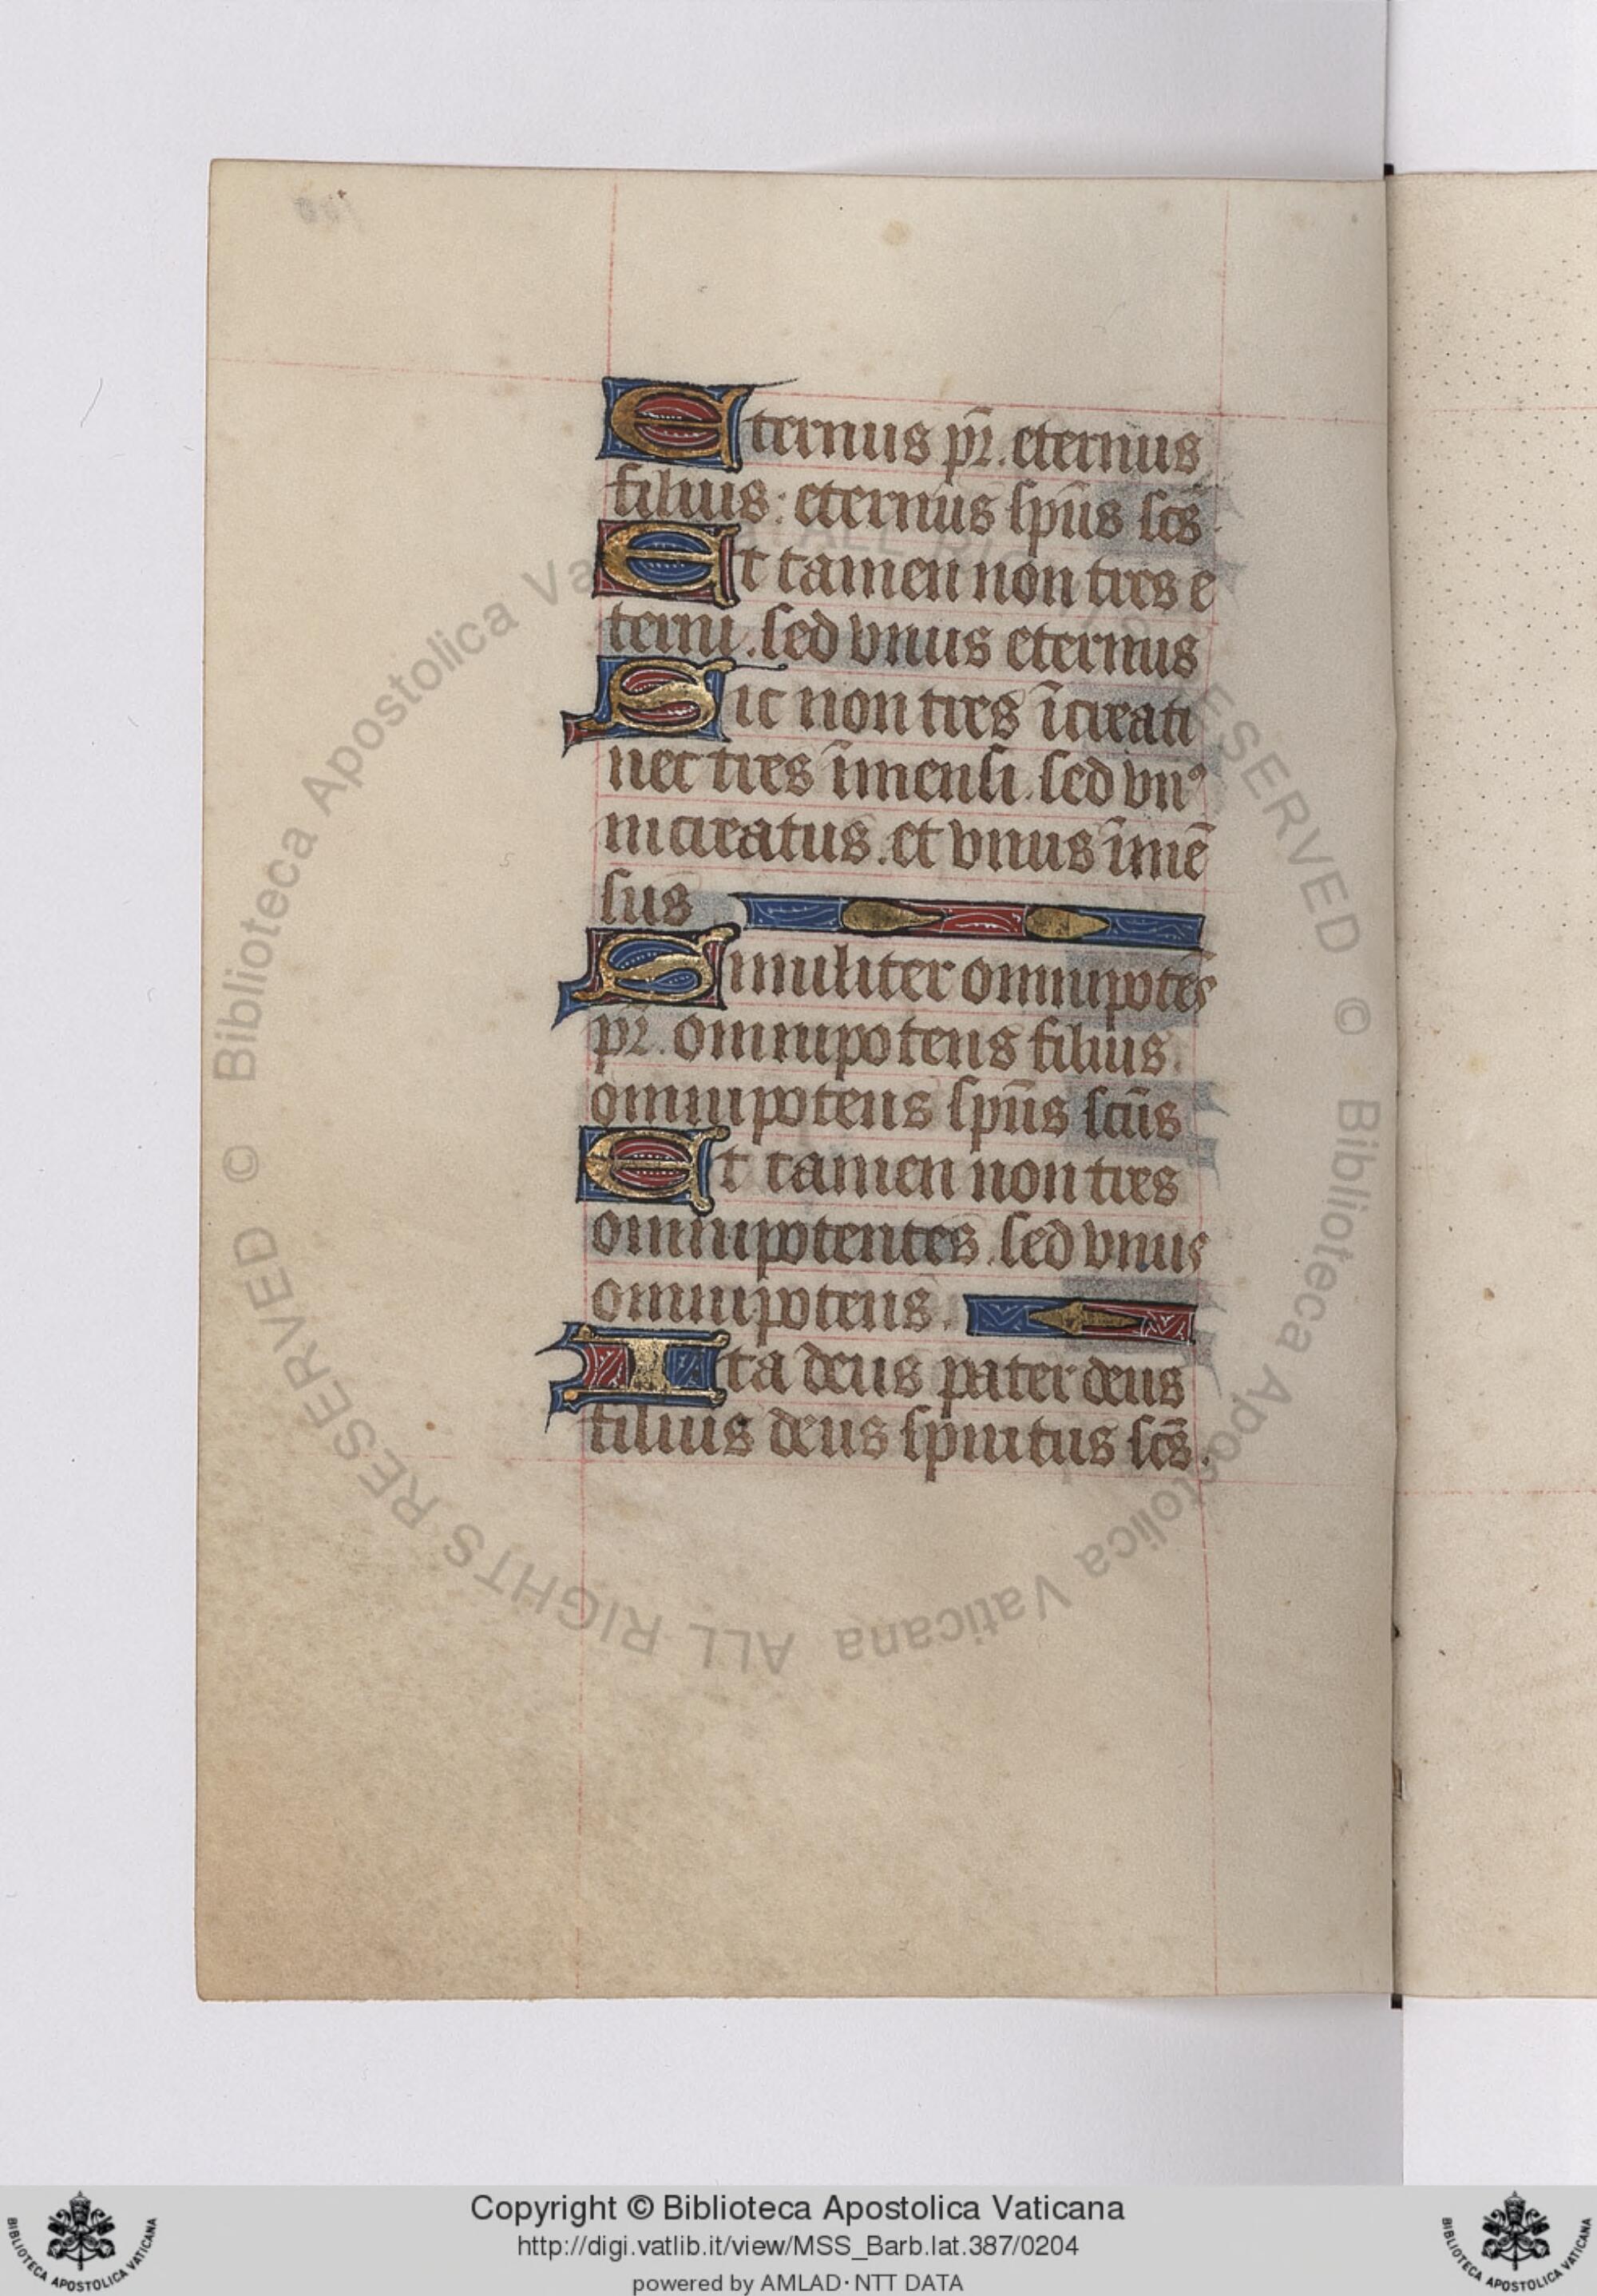 Eternus pr̄. eternus
filius. eternus spūs scs̄.
Et tamen non tres e
terni. sed vnus eternus
Sic non tres īcreati
nec tres īmensi. sed vnꝰ
increatus. et vnus īmē
sus
Similiter omnipotēs
pr̄. omnipotens filius.
omnipotens spūs sc̄us
Et tamen non tres
omnipotentes. sed vnus
omnipotens.
Ita deus pater deus
filius deus spiritus scs̄.
© Biblioteca Apostolica Vaticana ALL RIGHTS RESERVED
© Biblioteca Apostolica Vaticana ALL RIGHTS RESERVED
Copyright © Biblioteca Apostolica Vaticana
http://digi.vatlib.it/view/MSS_Barb.lat.387/0204
powered by AMLAD·NTT DATA
BIBLIOTECA APOSTOLICA VATICANA
BIBLIOTECA APOSTOLICA VATICANA